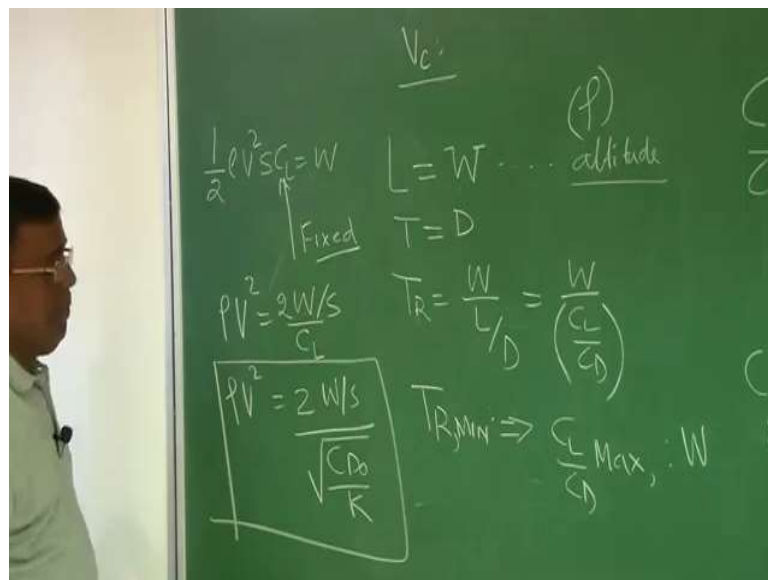 Vc:
(ρ)
altitude
1/2 ρV²SC_L = W
L = W ....
Fixed
T = D
ρV² = 2W/S / C_L
T_R = W / L/D = W / (C_L/C_D)
ρV² = 2W/S / √(C_D₀/K)
T_R,MIN ⇒ C_L/C_D Max, : W